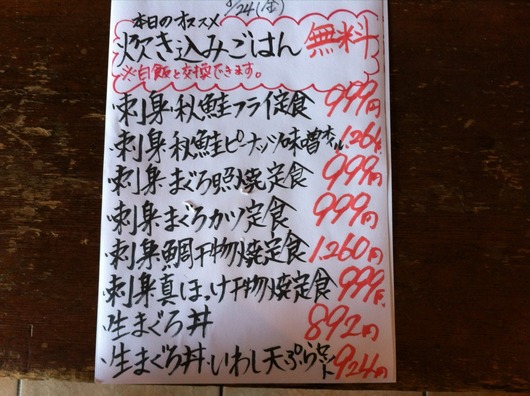 9/24(金)
本日のオススメ
炊き込みごはん 無料
※白飯と交換できます。
・刺身・秋鮭フライ定食 999円
・刺身・秋鮭ピーナッツ味噌ホイル 1,264
・刺身・まぐろ照焼定食 999円
・刺身・まぐろカツ定食 999円
・刺身・鯛干物焼定食 1,260円
・刺身・真ほっけ干物焼定食 999円
・生まぐろ丼 892円
・生まぐろ丼・いわし天ぷらセット 924円